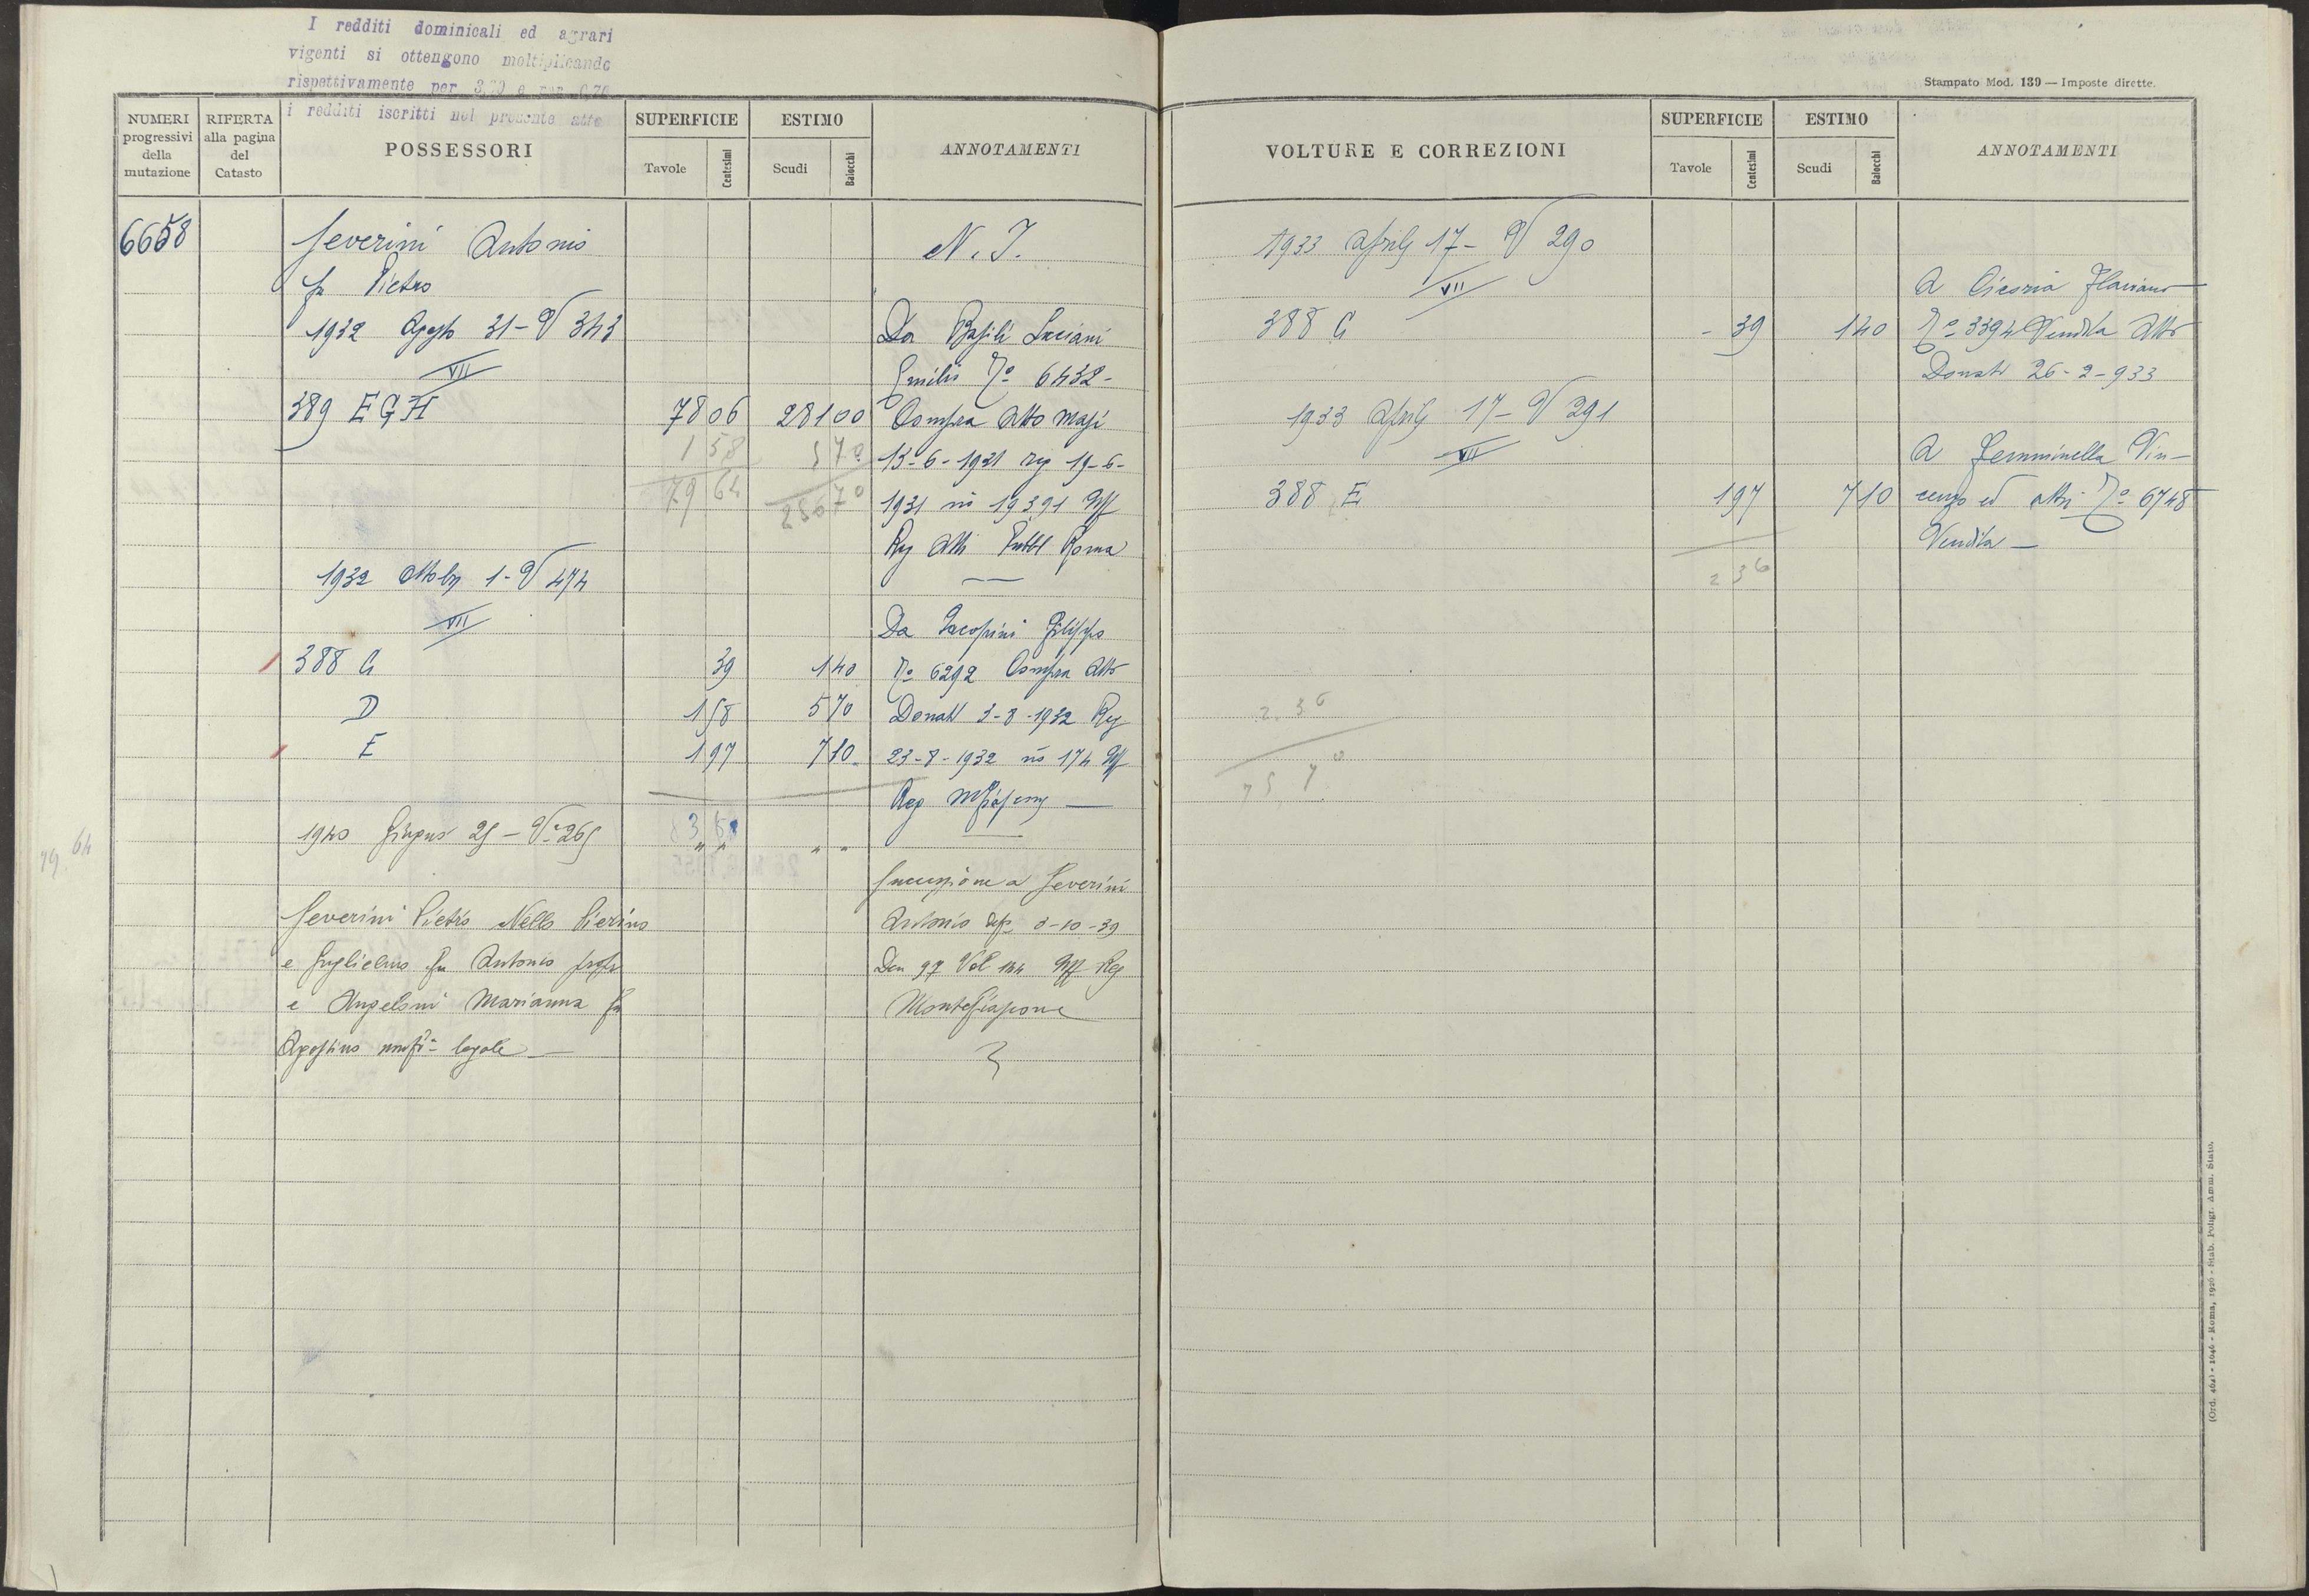 I redditi dominicali ed agrari
vigenti si ottengono moltiplicando
rispettivamente per
i redditi iscritti nel presente atto
NUMERI progressivi della mutazione
RIFERTA alla pagina del Catasto
POSSESSORI
SUPERFICIE
Tavole
Centesimi
ESTIMO
Scudi
Baiocchi
ANNOTAMENTI
6658
Severini Antonio
N. I.
fu Pietro
1932 Agosto 31 - V 343
Da Basili Luciani
VII
Emilio No 6432 -
389 E G H 78 06 281 00 Compra Atto Masi
1 58 5 70 13-6-1931 reg 19-6-
79 64 286 70 1931 no 19391 Uff
Reg Atti Pubbl Roma
1932 ottobre 1 - V 474
VII
Da Jacopini Filippo
388 G 39 1 40 No 6292 Compra Atto
D 1 58 5 70 Donati 3-8-1932 Reg
E 1 97 7 10 23-8-1932 no 174 Uff
Reg
1940 Giugno 25 - V 265
" " " "
79.64
Successione a Severini
Severini Pietro Nello Pierino
Antonio 3-10-39
e Guglielmo fu Antonio
Den 97 Vol 144 Uff Reg
e Angelini Marianna fu
Montefiascone
Agostino legale
Stampato Mod. 139 — Imposte dirette.
VOLTURE E CORREZIONI
SUPERFICIE
Tavole
Centesimi
ESTIMO
Scudi
Baiocchi
ANNOTAMENTI
1933 Aprile 17 - V 290
VII
A Cicoria Flaviano
388 G - 39 1 40 No 3394 Vendita Atto
Donati 26-2-933
1933 Aprile 17 - V 291
VII
A Femminella Vin-
388 E 1 97 7 10 cenzo ed altri No 6748
Vendita -
2 36
2. 36
(Ord. 464) - 1046 - Roma, 1926 - Stab. Poligr. Amm. Stato.